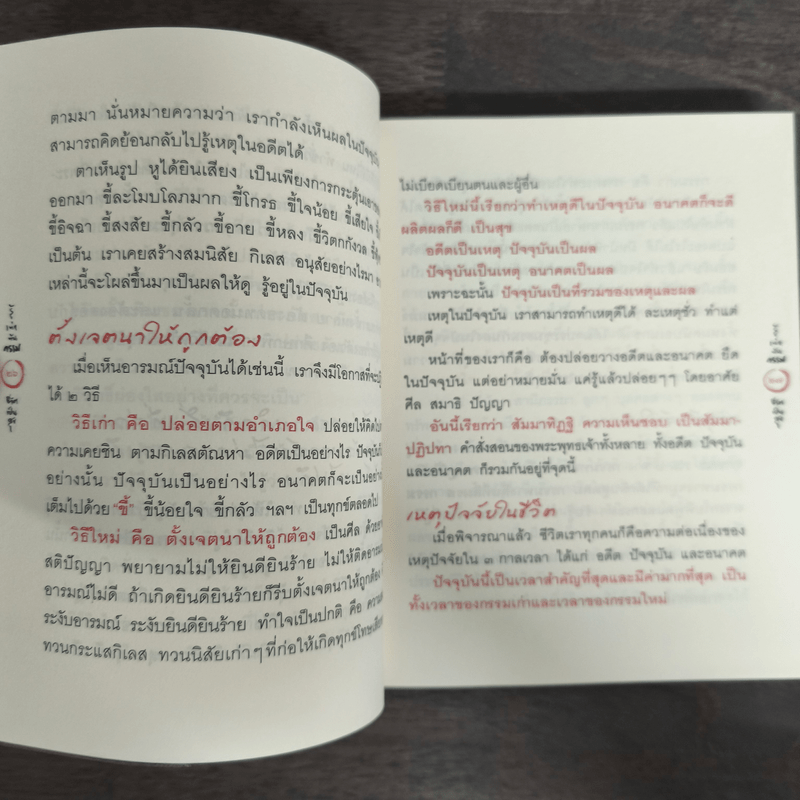 ตามมา นั่นหมายความว่า เรากำลังเห็นผลในปัจจุบัน
สามารถคิดย้อนกลับไปรู้เหตุในอดีตได้
ตาเห็นรูป หูได้ยินเสียง เป็นเพียงการกระตุ้นเอา
ออกมา ขี้ละโมบโลภมาก ขี้โกรธ ขี้ใจน้อย ขี้เสียใจ
ขี้อิจฉา ขี้สงสัย ขี้กลัว ขี้อาย ขี้หลง ขี้วิตกกังวล
เป็นต้น เราเคยสร้างสมนิสัย กิเลส อนุสัยอย่างไรมา
เหล่านี้จะโผล่ขึ้นมาเป็นผลให้ดู รู้อยู่ในปัจจุบัน
ตั้งเจตนาให้ถูกต้อง
เมื่อเห็นอารมณ์ปัจจุบันได้เช่นนี้ เราจึงมีโอกาสที่จะ
ได้ ๒ วิธี
วิธีเก่า คือ ปล่อยตามอำเภอใจ ปล่อยให้คิดไป
ความเคยชิน ตามกิเลสตัณหา อดีตเป็นอย่างไร ปัจจุบันก็
อย่างนั้น ปัจจุบันเป็นอย่างไร อนาคตก็จะเป็นอย่าง
เต็มไปด้วย “ขี้” ขี้น้อยใจ ขี้กลัว ฯลฯ เป็นทุกข์ตลอดไป
วิธีใหม่ คือ ตั้งเจตนาให้ถูกต้อง เป็นศีล ด้วย
สติปัญญา พยายามไม่ให้ยินดียินร้าย ไม่ให้ติดอารมณ์
อารมณ์ไม่ดี ถ้าเกิดยินดียินร้ายก็รีบตั้งเจตนาให้ถูกต้อง
ระงับอารมณ์ ระงับยินดียินร้าย ทำใจเป็นปกติ คือ
ทวนกระแสกิเลส ทวนนิสัยเก่าๆ ที่ก่อให้เกิดทุกข์โทษ
ไม่เบียดเบียนตนและผู้อื่น
วิธีใหม่นี้เรียกว่าทำเหตุดีในปัจจุบัน อนาคตก็จะดี
ผลิตผลก็ดี เป็นสุข
อดีตเป็นเหตุ ปัจจุบันเป็นผล
ปัจจุบันเป็นเหตุ อนาคตเป็นผล
เพราะฉะนั้น ปัจจุบันเป็นที่รวมของเหตุและผล
เหตุในปัจจุบัน เราสามารถทำเหตุดีได้ ละเหตุชั่ว ทำแต่
เหตุดี
หน้าที่ของเราก็คือ ต้องปล่อยวางอดีตและอนาคต ยึด
ในปัจจุบัน แต่อย่าหมายมั่น แค่รู้แล้วปล่อยๆๆ โดยอาศัย
ศีล สมาธิ ปัญญา
อันนี้เรียกว่า สัมมาทิฏฐิ ความเห็นชอบ เป็นสัมมา-
ปฏิปทา คำสั่งสอนของพระพุทธเจ้าทั้งหลาย ทั้งอดีต ปัจจุบัน
และอนาคต ก็รวมกันอยู่ที่จุดนี้
เหตุปัจจัยในชีวิต
เมื่อพิจารณาแล้ว ชีวิตเราทุกคนก็คือความต่อเนื่องของ
เหตุปัจจัยใน ๓ กาลเวลา ได้แก่ อดีต ปัจจุบัน และอนาคต
ปัจจุบันนี้เป็นเวลาสำคัญที่สุดและมีค่ามากที่สุด เป็น
ทั้งเวลาของกรรมเก่าและเวลาของกรรมใหม่